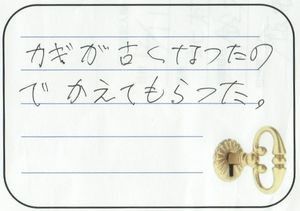 カギが古くなったの
でかえてもらった。